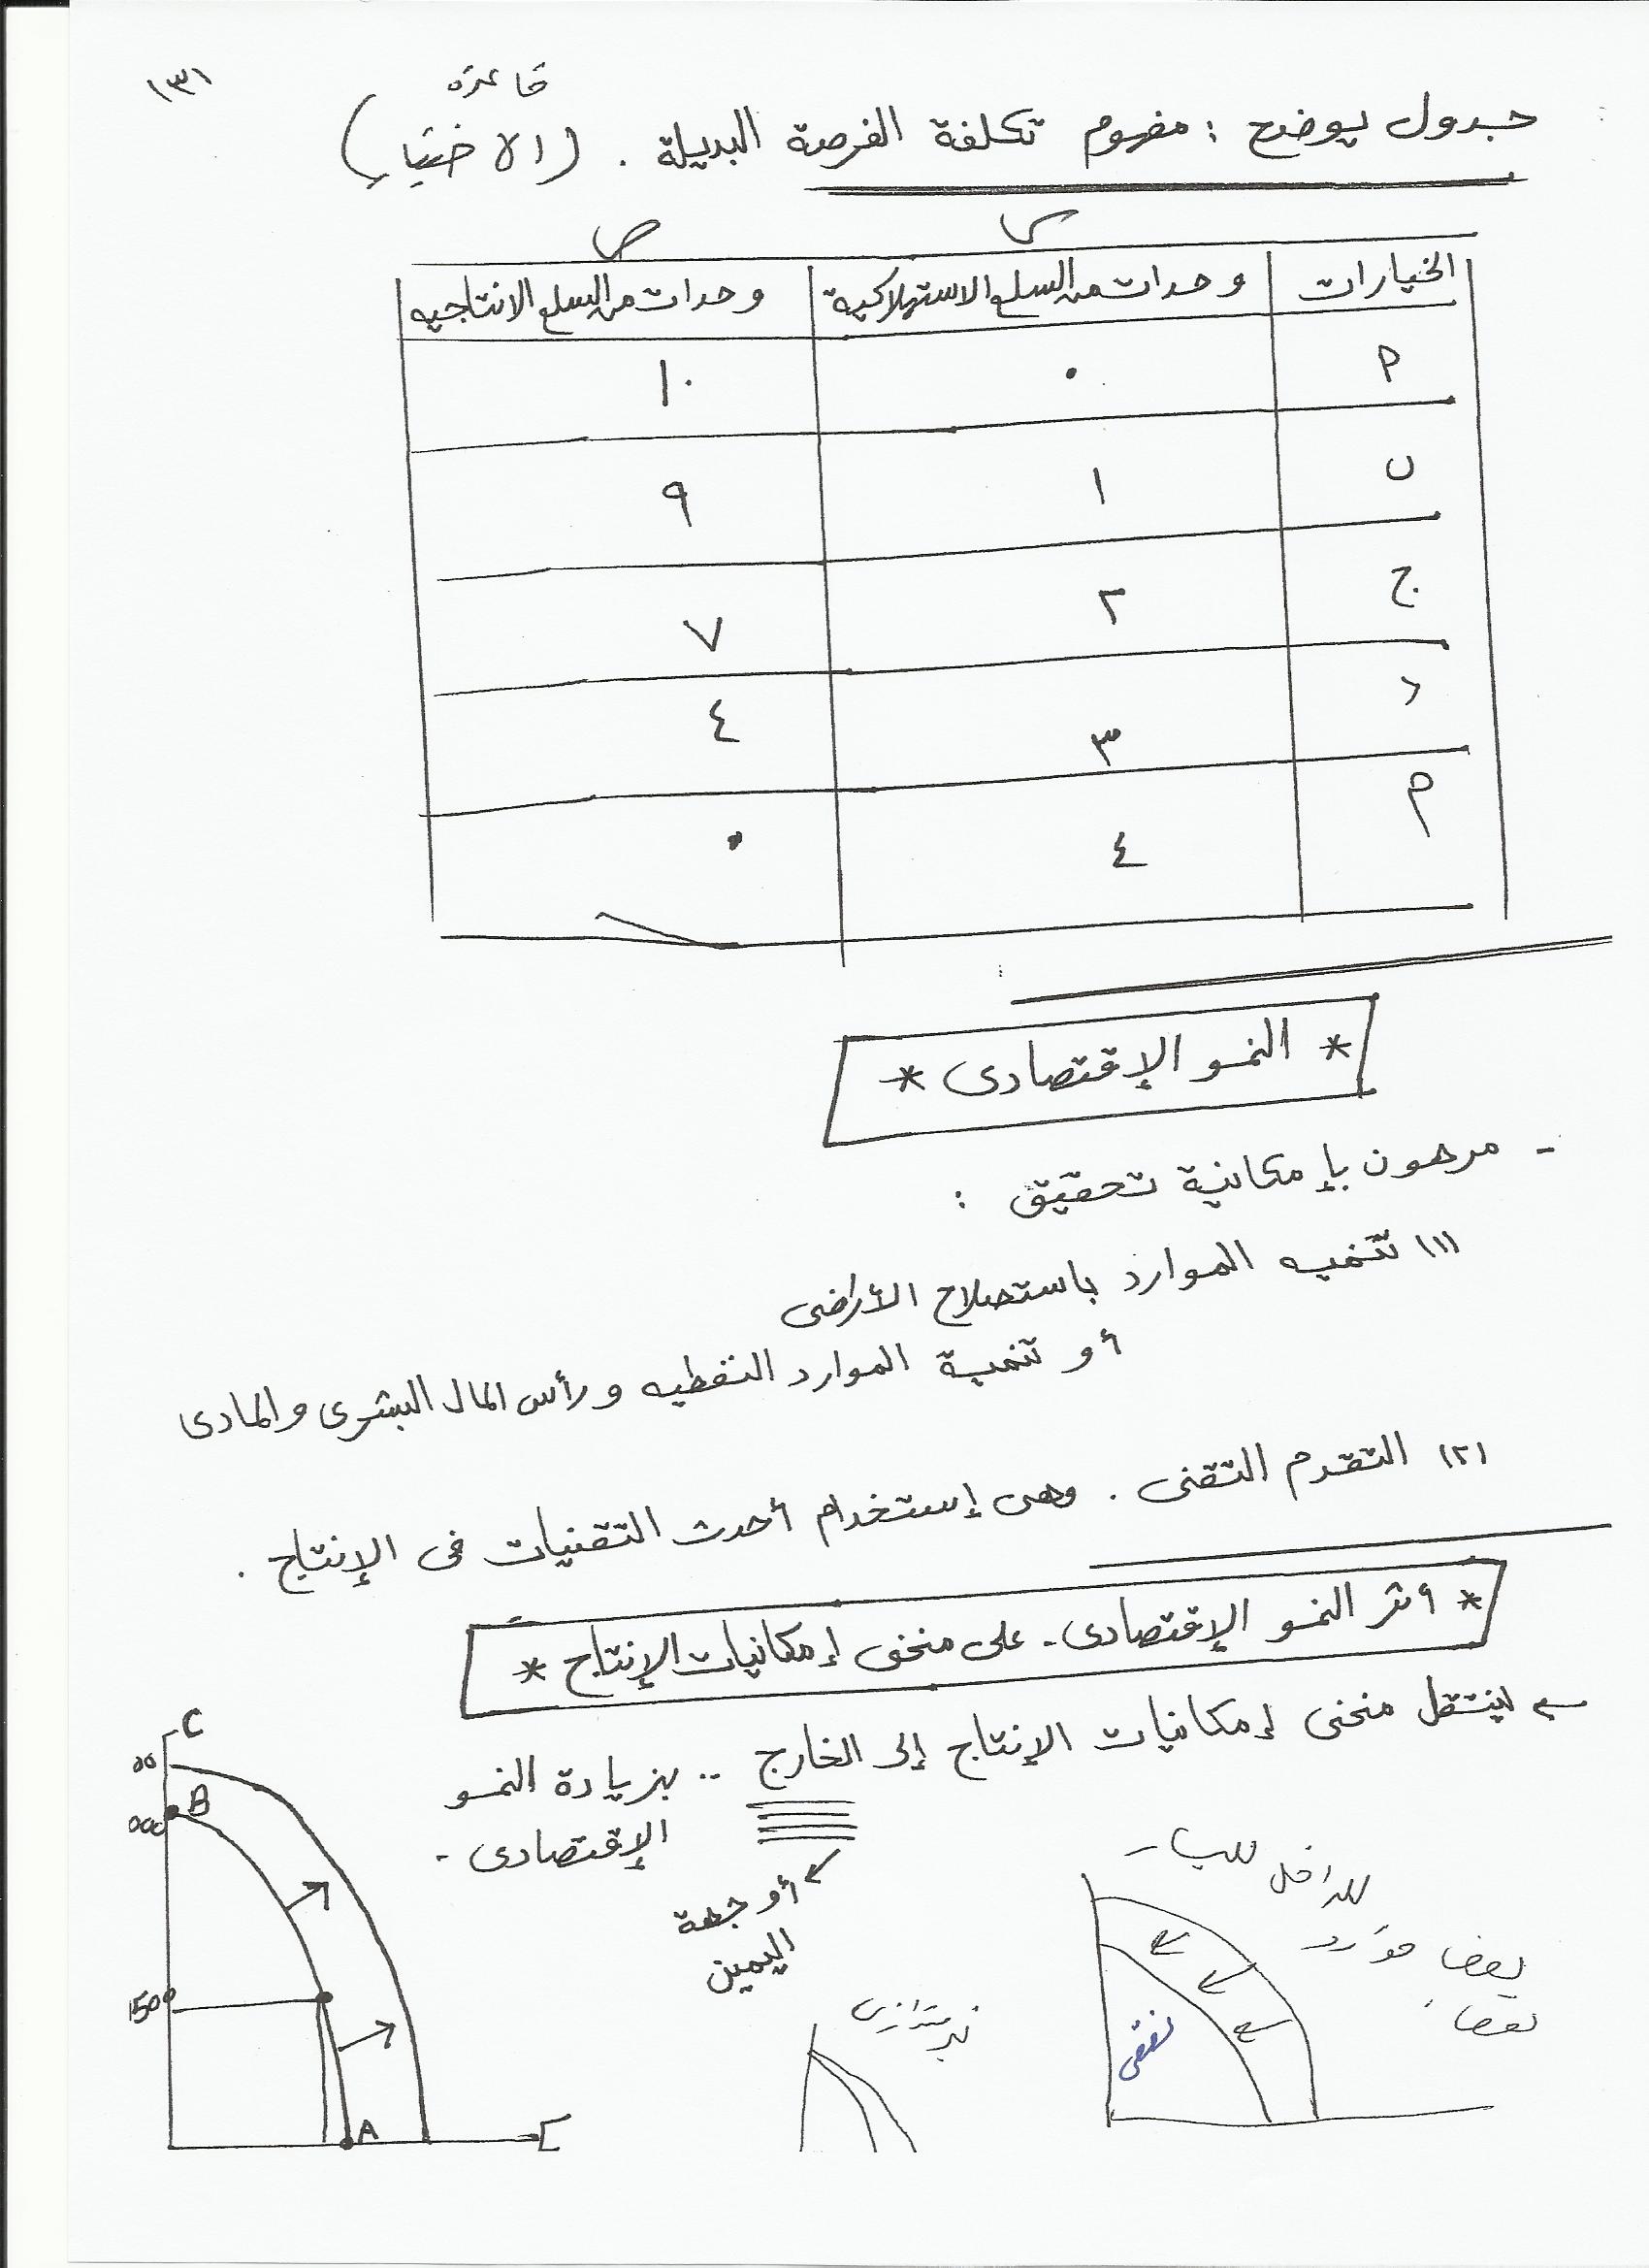 (١٣)
قاعدة
جدول يوضح : مفهوم تكلفة الفرصة البديلة . (الاختيار)
س ص
الخيارات وحدات من السلع الاستهلاكية وحدات من السلع الانتاجيه
أ ٠ ١٠
ب ١ ٩
ج ٢ ٧
د ٣ ٤
م ٤ ٠
* النمو الإقتصادى *
- مرهون بإمكانية تحقيق :
(١) تنميه الموارد باستصلاح الأراضى
أو تنمية الموارد النفطيه ورأس المال البشرى والمادى
(٢) التقدم التقنى . وهى إستخدام أحدث التقنيات فى الإنتاج .
* أثر النمو الإقتصادى - على منحنى إمكانيات الإنتاج *
ينتقل منحنى إمكانيات الإنتاج إلى الخارج .. بزيادة النمو
الإقتصادى -
أو جهة
اليمين
C
B
1500
A
للداخل لليسار
نقص موارد
نقص